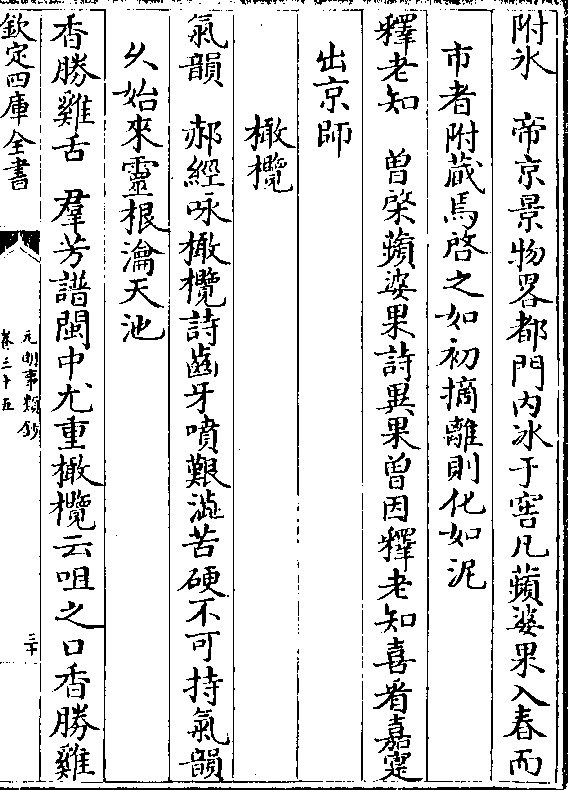 附氷　帝京景物畧都門内冰于窖凡蘋婆果入春而
市者附藏焉啓之如初摘離則化如泥
釋老知　曾棨蘋婆果詩異果曾因釋老知喜看嘉寔
出京師
橄欖
氣韻　郝經咏橄欖詩齒牙噴艱澁苦硬不可持氣韻
久始來靈根瀹天池
香勝雞舌　羣芳譜閩中尤重橄欖云咀之口香勝雞
欽定四庫全書
元明事類鈔
卷三十五
三十